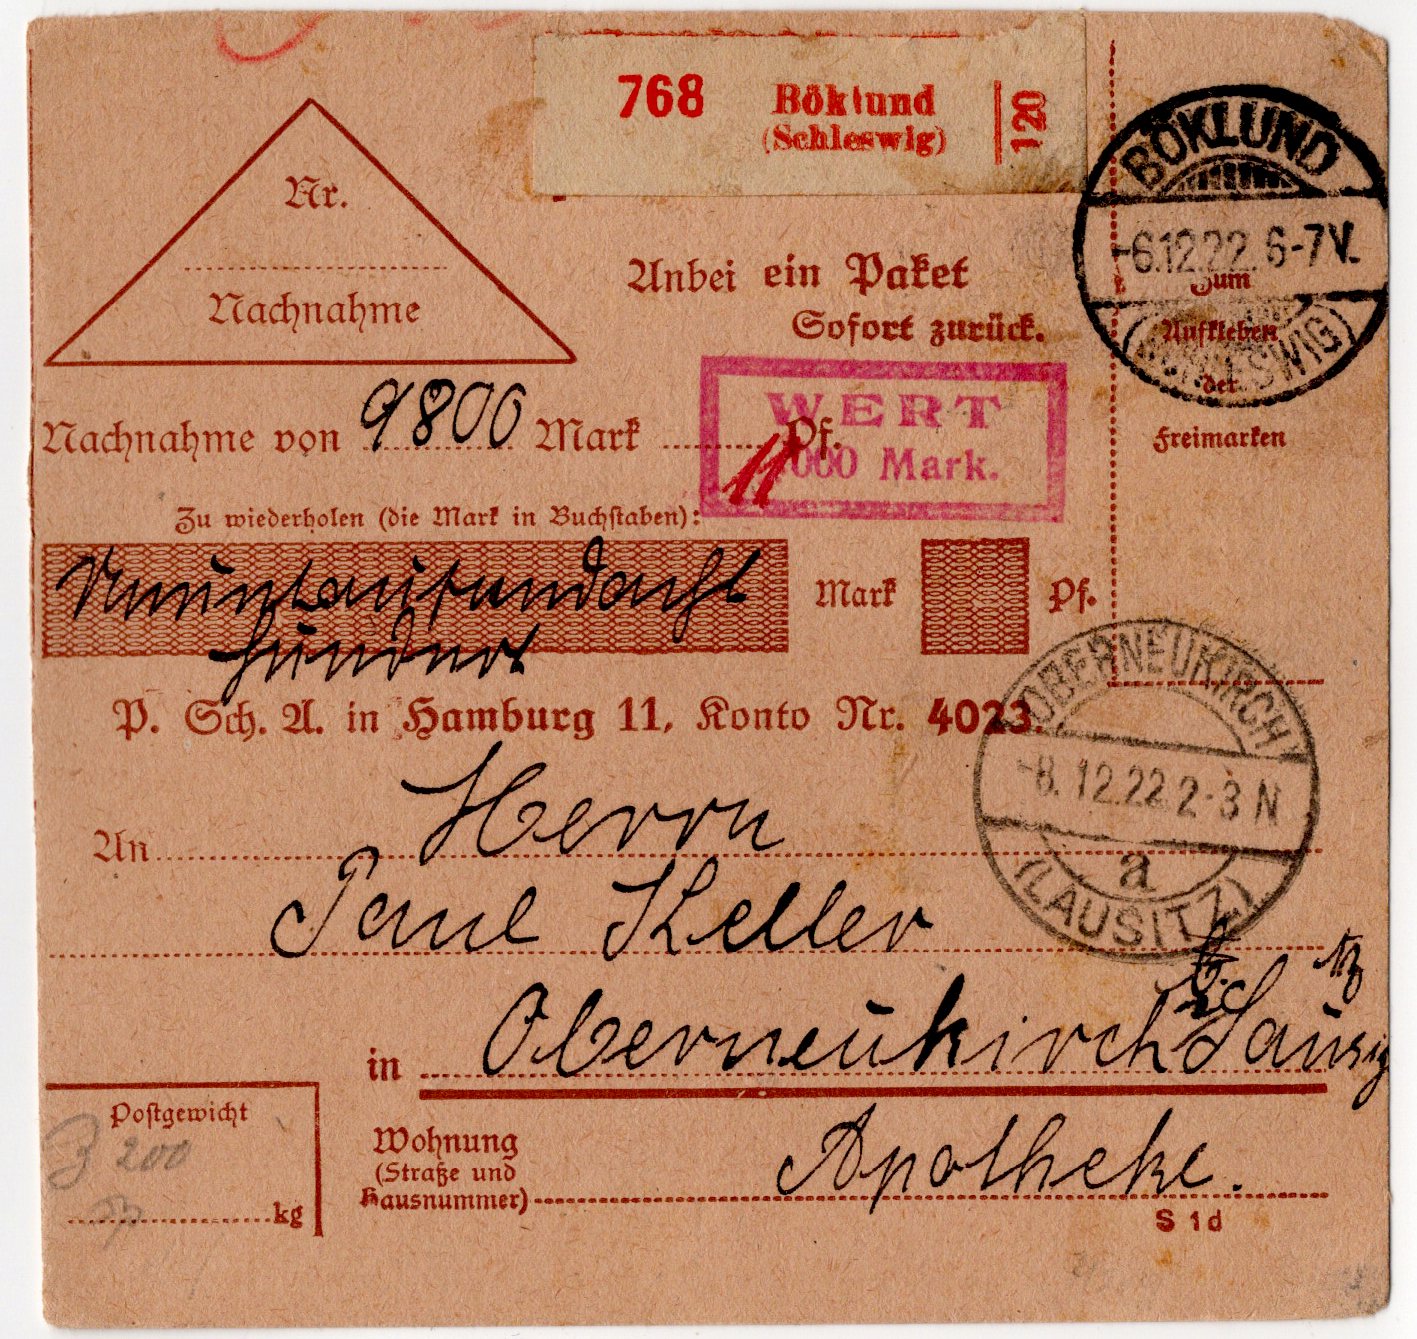 768 Böklund
(Schleswig)
120
BÖKLUND
-6.12.22. 6-7V.
(SCHLESWIG)
Nr.
Nachnahme
Anbei ein Paket
Sofort zurück.
Zum
Aufkleben
der
Freimarken
WERT
000 Mark.
Nachnahme von 9800 Mark Pf.
Zu wiederholen (die Mark in Buchstaben):
Neuntausendacht Mark Pf.
hundert
P. Sch. A. in Hamburg 11, Konto Nr. 4023.
OBERNEUKIRCH
-8.12.22 2-3 N
a
(LAUSITZ)
An Herrn
Paul Keller
in Oberneukirch Lausitz
Postgewicht
200
kg
Wohnung
(Straße und
Hausnummer)
Apotheke.
S 1d